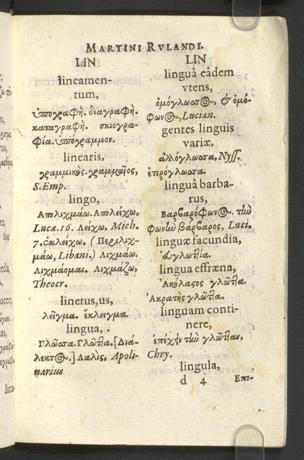 MARTINI RVLANDI.
LIN
lineamen-
tum,
ὑπογραφὴ. διαγραφὴ.
καταγραφὴ. σκιογρα-
φία. ὑπογραμμον.
linearis,
γραμμικὸς. γραμμαῖος,
S. Emp.
lingo,
Απλιχμάω. Απλείχω.
Luca. 16. Λείχω. Mich.
7. ἐκλείχω. (Περιλιχ-
μάω, Libani.) Λιχμάω.
Λιχμάομαι. Λιχμάζω,
Theocr.
linctus,us,
λεῖγμα. ἔκλειγμα.
lingua,
Γλῶσσα. Γλῶττα. [Διά-
λεκτος.] Λαλὶς. Apoli-
narius
LIN
linguâ eâdem
vtens,
ὁμόγλωσσος, & ὁμό-
φωνος, Lucian.
gentes linguis
variæ,
ἀλλόγλωσσα, Nyss.
ἑτερόγλωσσα.
linguâ barba-
rus,
Βαρβαρόφωνος. τὴν
φωνὴν βάρβαρος, Luci.
linguæ facundia,
εὐγλωττία.
lingua effræna,
Ἀκόλαστος γλῶττα.
Ακρατὴς γλῶττα.
linguam conti-
nere,
ἐπέχειν τὴν γλῶτταν,
Chry.
lingula,
d 4 Επι-